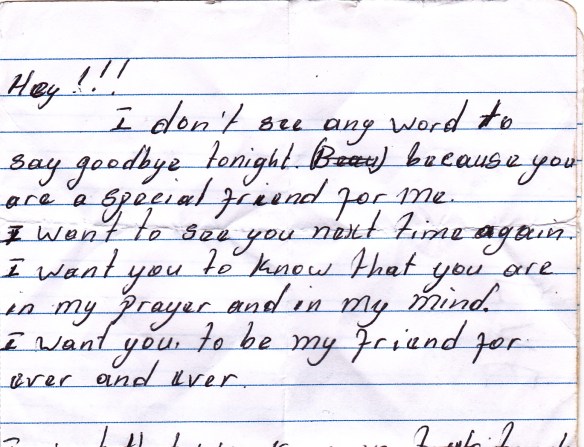 Hey !!!
I don't see any word to
say goodbye tonight. (Beau) because you
are a special friend for me.
I want to see you next time again.
I want you to know that you are
in my prayer and in my mind.
I want you to be my friend for
ever and ever.